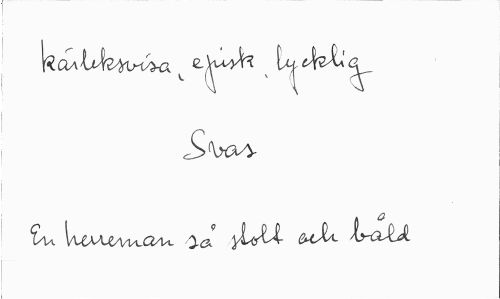 kärleksvisa, episk, lycklig
Svas
En herreman så stolt och båld